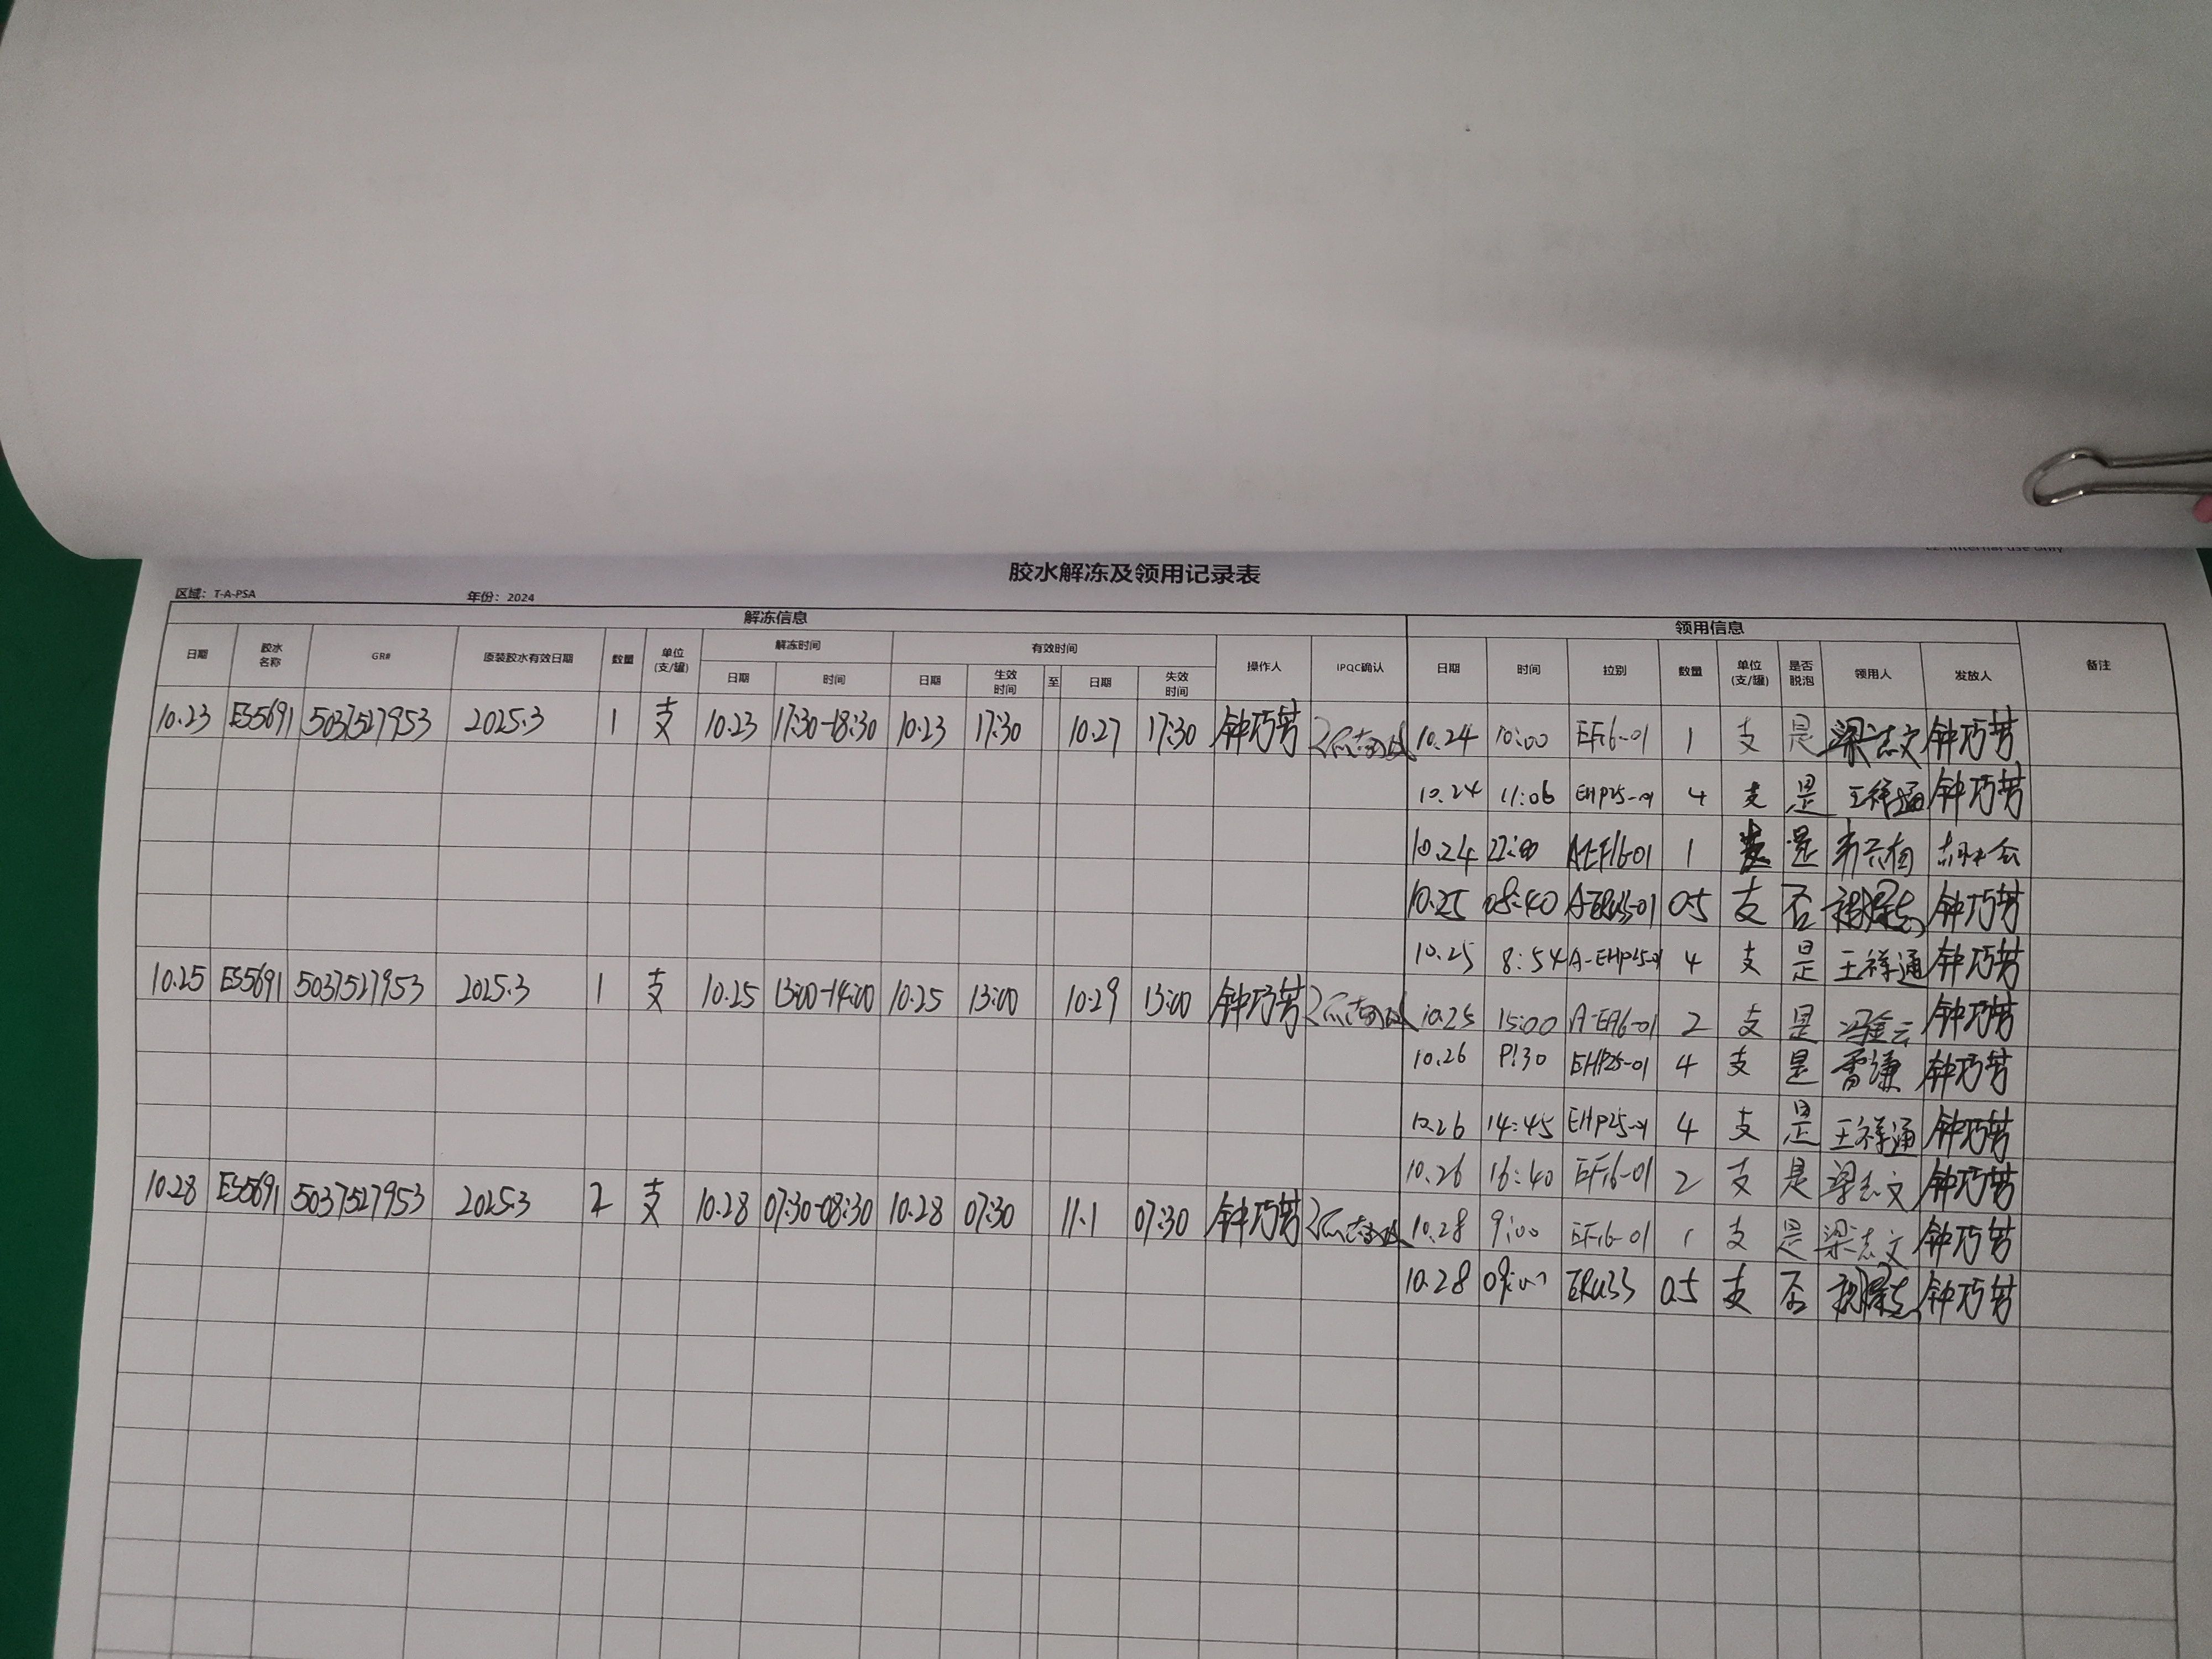 Internal use only
胶水解冻及领用记录表
区域：T-A-PSA 年份：2024
解冻信息 领用信息
日期 胶水名称 GR# 原装胶水有效日期 数量 单位(支/罐) 解冻时间 有效时间 操作人 IPQC确认 日期 时间 拉别 数量 单位(支/罐) 是否脱泡 领用人 发放人 备注
日期 时间 日期 生效时间 至 日期 失效时间
10.23 ES5691 5037527953 2025.3 1 支 10.23 17:30-18:30 10.23 17:30 10.27 17:30 钟巧芳 10.24 10:00 EF16-01 1 支 是 梁志文 钟巧芳
10.24 11:06 EHP25-01 4 支 是 王祥通 钟巧芳
10.24 22:00 A-EF16-01 1 支 是
10.25 08:40 A-ERU33-01 0.5 支 否 钟巧芳
10.25 8:54 A-EHP25-01 4 支 是 王祥通 钟巧芳
10.25 ES5691 5037527953 2025.3 1 支 10.25 13:00-14:00 10.25 13:00 10.29 13:00 钟巧芳 10.25 15:00 2 支 是 冯金云 钟巧芳
10.26 EHP25-01 4 支 是 雷谦 钟巧芳
10.26 14:45 EHP25-01 4 支 是 王祥通 钟巧芳
10.26 16:40 EF16-01 2 支 是 梁志文 钟巧芳
10.28 ES5691 5037527953 2025.3 2 支 10.28 07:30-08:30 10.28 07:30 11.1 07:30 钟巧芳 10.28 9:00 EF16-01 1 支 是 梁志文 钟巧芳
10.28 09:00 ERU33 0.5 支 否 钟巧芳